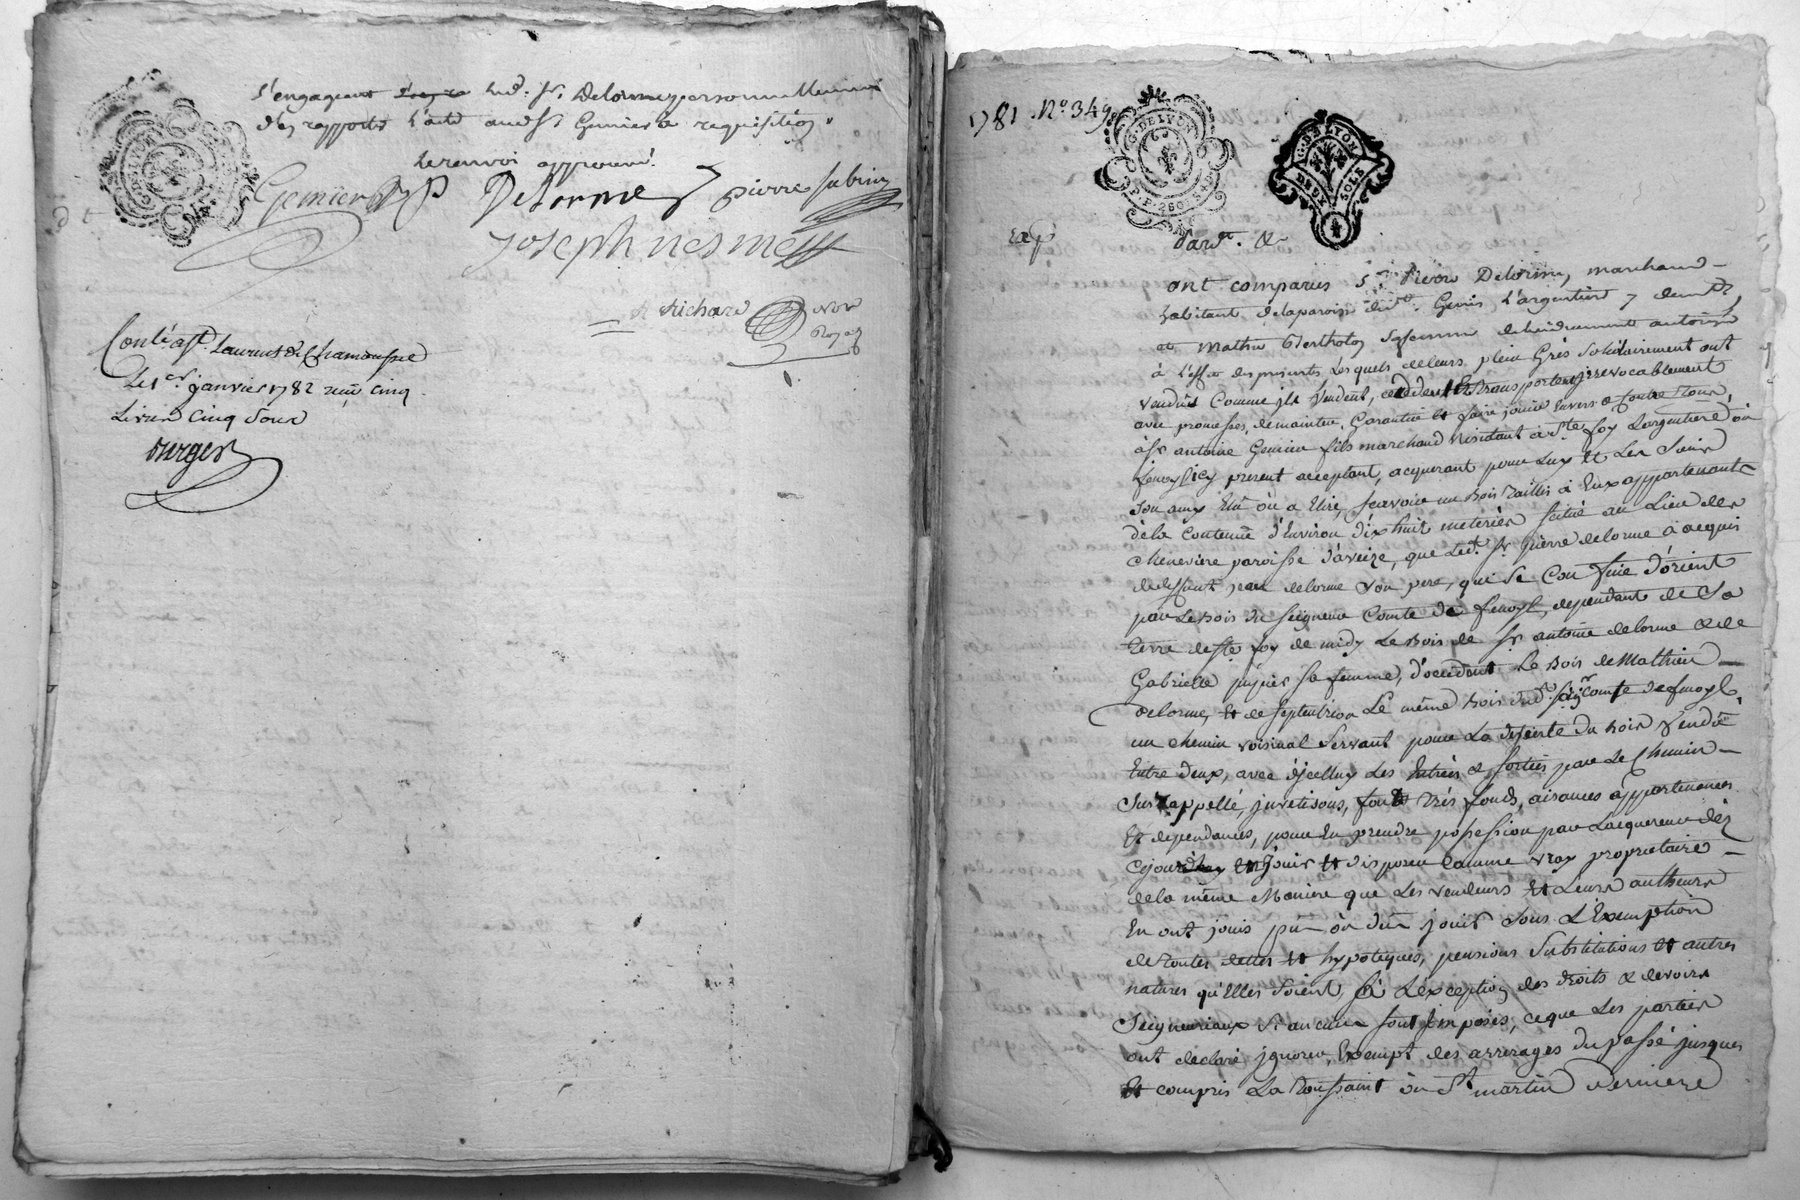 s'engageant led. Sr. Delorme personnellement
d'en rapporter l'acte audSr Genier à requisition.
le renvoi approuvé.
G. DE LYON
Genier fils Delorme pierre subrin
Joseph nesme
Richard Not
Royal
Conlé à St. Laurent de Chamousset
le 1er janvier 1782 reçu cinq
Livres cinq sous
Burger
1781. No. 349.
G. DE LYON
G. DE LYON
DEUX SOLS
Exp
Pardt. &
ont comparus Sr. Pierre Delorme, marchand
habitant de la paroisse de St. Genis L'argentiere
et Mathie Bertholon sa femme de lui duement autorisée
à L'effet des presentes Lesquels de leurs plein Grés Solidairement ont
vendus Comme ils Vendent, cedent Et transportent irrevocablement
avec promesses, de maintenir, Garantir Et faire jouir Envers & Contre Tous,
à Sr antoine Genier fils marchand residant à Ste foy Largentiere où
Fenoyl icy present acceptant, acquerant pour Luy Et Les Siens
Son amy Elû où a Elire, Scavoir un Bois Taillis à Eux appartenant
de la Contenue d'Environ dixhuit meterées Situé au Lieu des
Chenevière paroisse d'aveize, que Led. Sr. pierre delorme à acquis
de deffunt jean delorme Son pere, qui Se Confine d'orient
par Le Bois du Seigneur Comte de fenoyl, dependant de Sa
Terre de Ste foy de midy Le Bois de Sr antoine delorme & de
Gabrielle pupier Sa femme, d'occident Le Bois de Mathieu
delorme, Et de Septentrion Le même Bois dud. Seigr. Comte de fenoyl,
un Chemin voisinal Servant pour La desserte du bois Vendû
Entre deux, avec d'jcelluy Les Entrées & Sorties par Le Chemin
Sus appellé, fonds Très fonds, aisances appartenances
Et dependances, pour En prendre possession par Lacquereur dès
cejourdhuy En jouir Et disposer Comme vray proprietaire
de la même Maniere que Les vendeurs Et Leurs autheurs
En ont jouis pû où dû jouir Sous L'Exemption
de Toutes dettes Et hypoteques, pensions Substitutions Et autres
natures qu'Elles Soient, à L'exception des droits & devoirs
Seigneuriaux Si aucuns Sont Imposés, ceque Les parties
ont declaré jgnorer, Exempt des arrerages du passé jusques
Et compris La Toussaint où St martin derniere